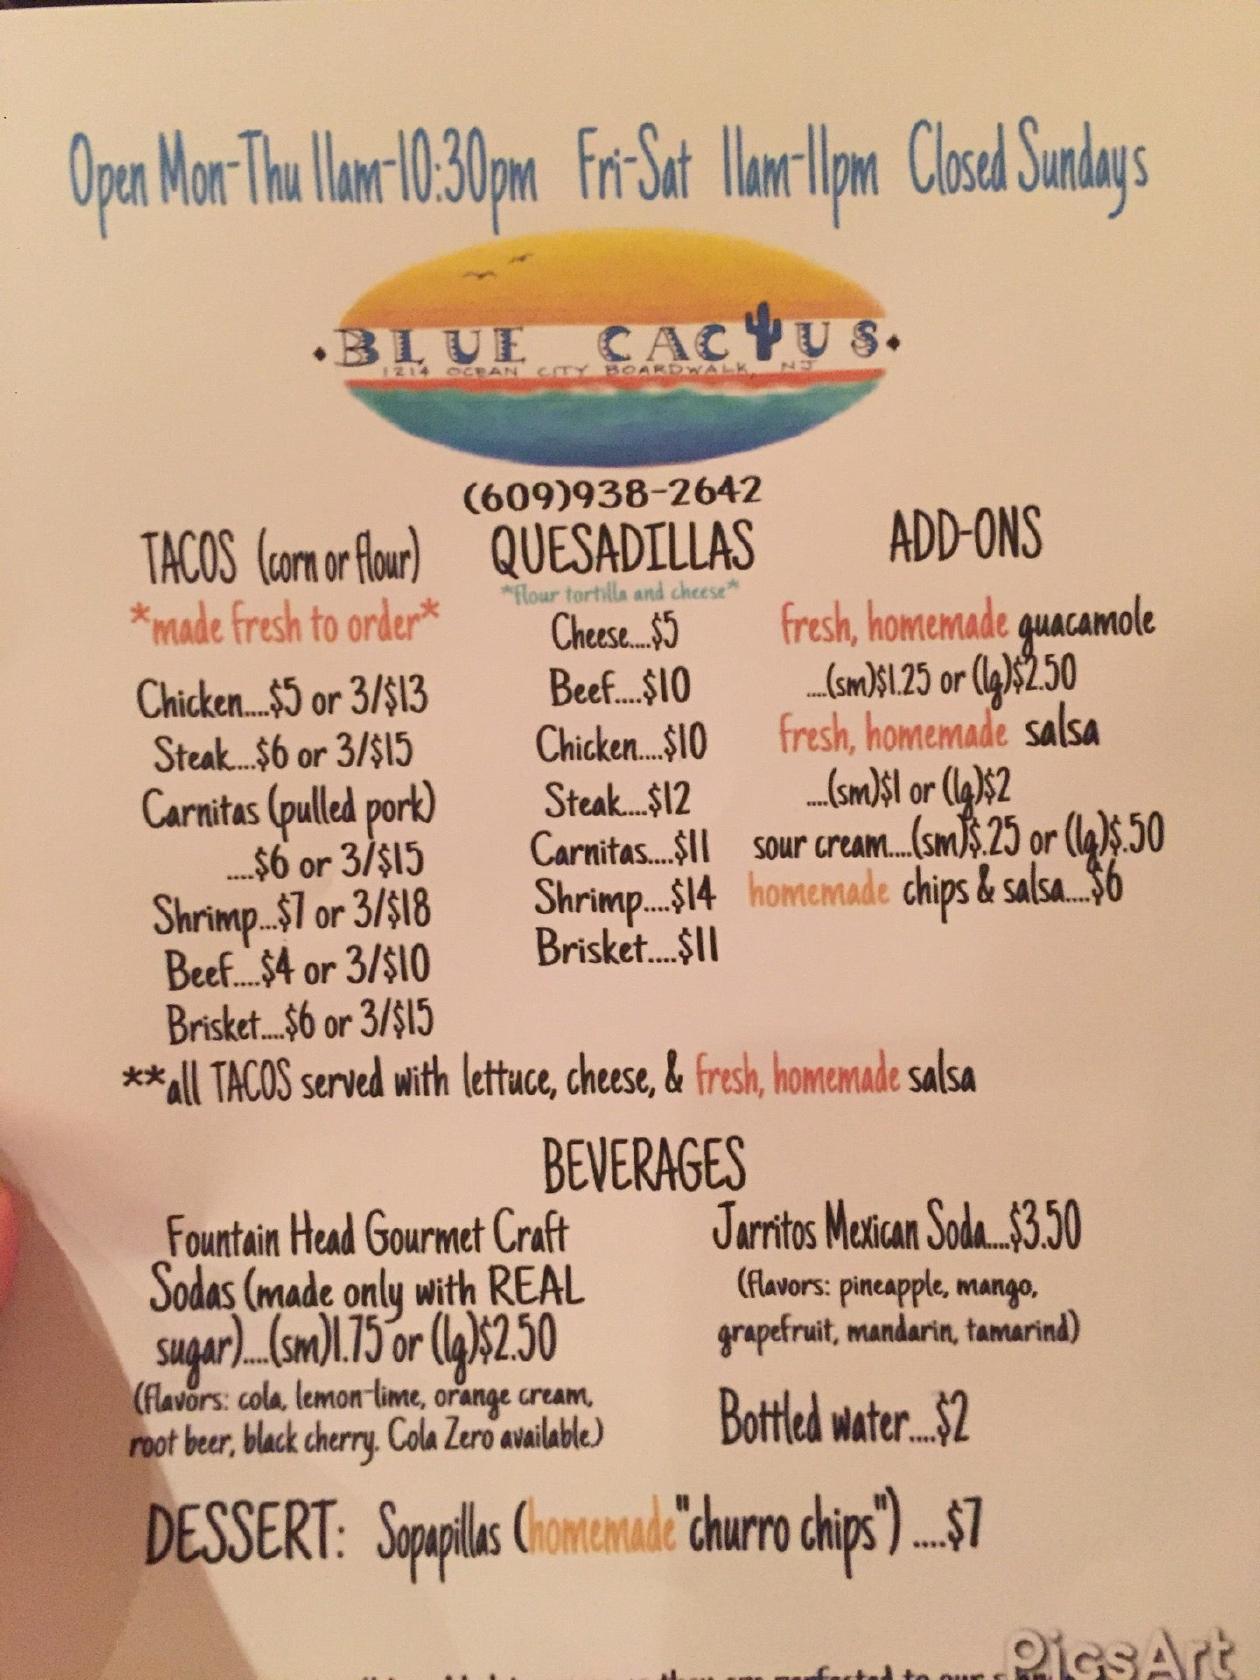 Open Mon-Thu 11am-10:30pm Fri-Sat 11am-11pm Closed Sundays
BLUE CACTUS
1214 OCEAN CITY BOARDWALK, NJ
(609)938-2642
TACOS (corn or flour)
*made fresh to order*
Chicken....$5 or 3/$13
Steak....$6 or 3/$15
Carnitas (pulled pork)
....$6 or 3/$15
Shrimp...$7 or 3/$18
Beef....$4 or 3/$10
Brisket....$6 or 3/$15
QUESADILLAS
*flour tortilla and cheese*
Cheese....$5
Beef....$10
Chicken....$10
Steak....$12
Carnitas....$11
Shrimp....$14
Brisket....$11
ADD-ONS
fresh, homemade guacamole
....(sm)$1.25 or (lg)$2.50
fresh, homemade salsa
....(sm)$1 or (lg)$2
sour cream....(sm)$.25 or (lg)$.50
homemade chips & salsa....$6
**all TACOS served with lettuce, cheese, & fresh, homemade salsa
BEVERAGES
Fountain Head Gourmet Craft
Sodas (made only with REAL
sugar)....(sm)1.75 or (lg)$2.50
(flavors: cola, lemon-lime, orange cream,
root beer, black cherry. Cola Zero available)
Jarritos Mexican Soda....$3.50
(flavors: pineapple, mango,
grapefruit, mandarin, tamarind)
Bottled water....$2
DESSERT: Sopapillas (homemade "churro chips") ....$7
PicsArt